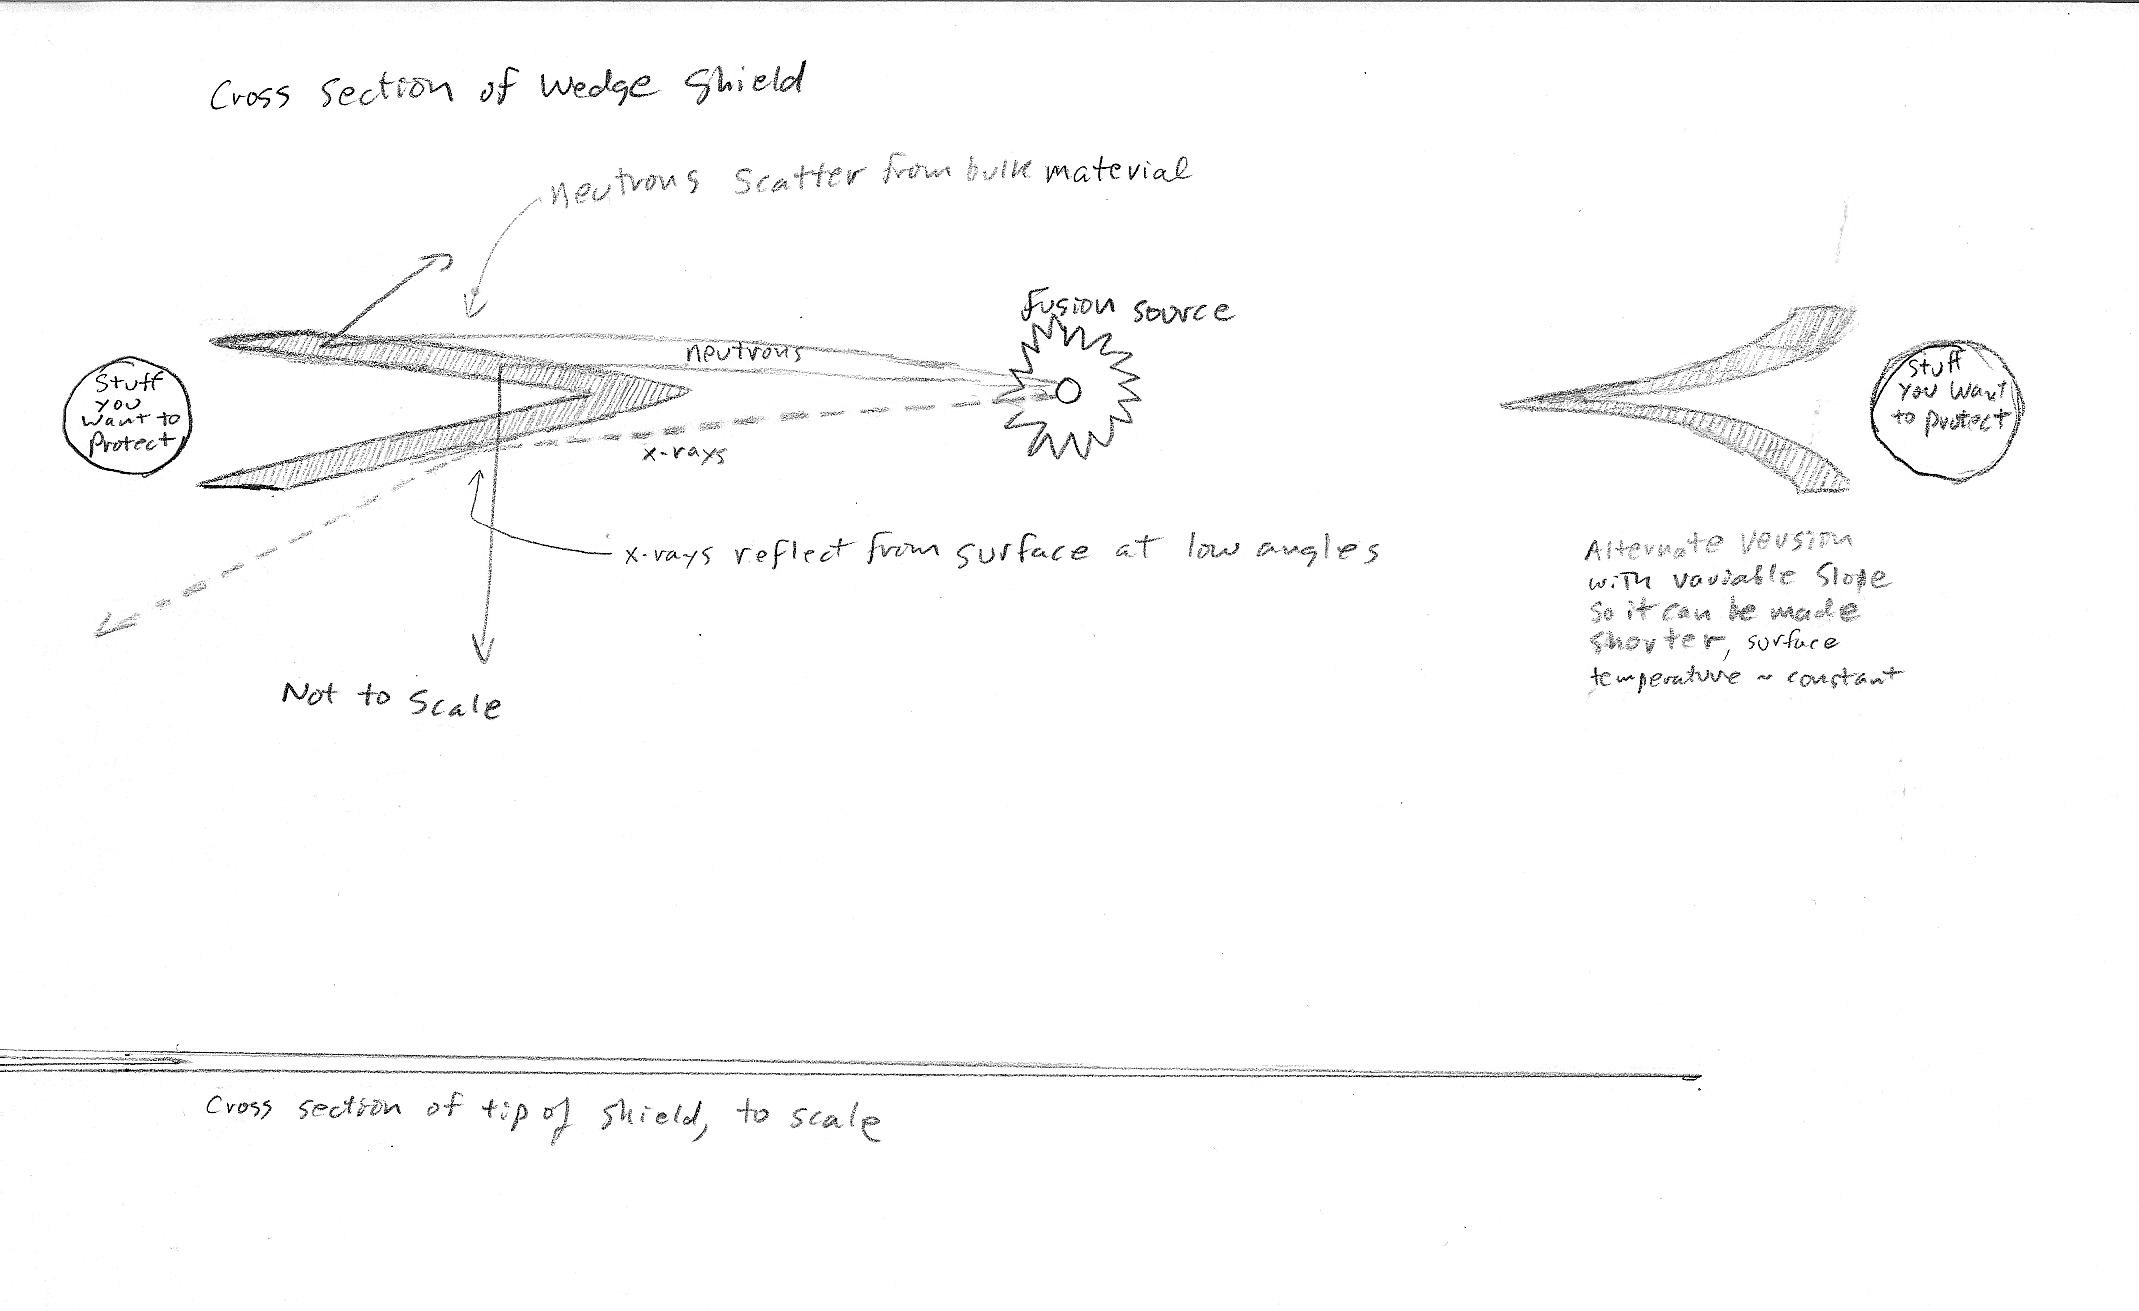 Cross section of wedge shield
neutrons scatter from bulk material
fusion source
neutrons
Stuff
you
want to
protect
x-rays
x-rays reflect from surface at low angles
Not to scale
Stuff
you want
to protect
Alternate version
with variable slope
so it can be made
shorter, surface
temperature ~ constant
Cross section of tip of shield, to scale